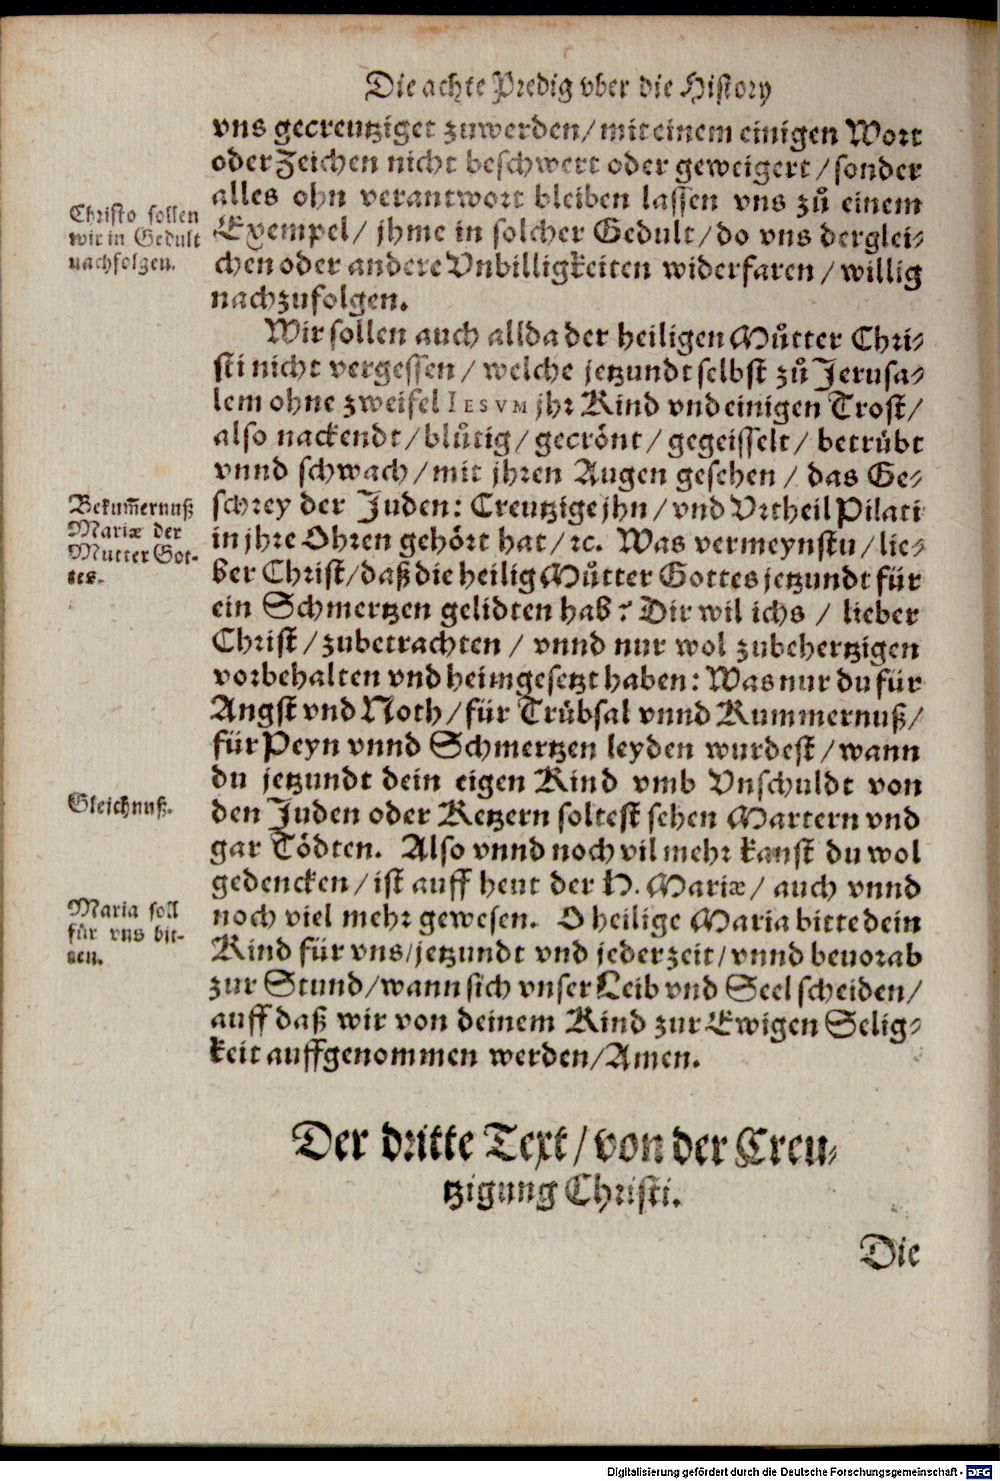 Die achte Predig vber die History
vns gecreutziget zuwerden/ mit einem einigen Wort
oder Zeichen nicht beschwert oder geweigert/ sonder
alles ohn verantwort bleiben lassen vns zů einem
Exempel/ jhme in solcher Gedult/ do vns derglei-
chen oder andere Vnbilligkeiten widerfaren/ willig
nachzufolgen.
Christo sollen
wir in Gedult
nachfolgen.
Wir sollen auch allda der heiligen Můtter Chri-
sti nicht vergessen/ welche jetzundt selbst zů Jerusa-
lem ohne zweifel IESVM jhr Kind vnd einigen Trost/
also nackendt/ blůtig/ gecrönt/ gegeisselt/ betrübt
vnnd schwach/ mit jhren Augen gesehen/ das Ge-
schrey der Juden: Creutzige jhn/ vnd Vrtheil Pilati
in jhre Ohren gehört hat/ ꝛc. Was vermeynstu/ lie-
ber Christ/ daß die heilig Můtter Gottes jetzundt für
ein Schmertzen gelidten hab? Dir wil ichs/ lieber
Christ/ zubetrachten/ vnnd nur wol zubehertzigen
vorbehalten vnd heimgesetzt haben: Was nur du für
Angst vnd Noth/ für Trübsal vnnd Kummernuß/
für Peyn vnnd Schmertzen leyden wurdest/ wann
du jetzundt dein eigen Kind vmb Vnschuldt von
den Juden oder Ketzern soltest sehen Martern vnd
gar Tödten. Also vnnd noch vil mehr kanst du wol
gedencken/ ist auff heut der H. Mariæ/ auch vnnd
noch viel mehr gewesen. O heilige Maria bitte dein
Kind für vns/ jetzundt vnd jederzeit/ vnnd beuorab
zur Stund/ wann sich vnser Leib vnd Seel scheiden/
auff daß wir von deinem Kind zur Ewigen Selig-
keit auffgenommen werden/ Amen.
Bekum̄ernuß
Mariæ der
Mutter Got-
tes.
Gleichnuß.
Maria soll
für vns bit-
ten.
Der dritte Text/ von der Creu-
tzigung Christi.
Die
Digitalisierung gefördert durch die Deutsche Forschungsgemeinschaft - DFG